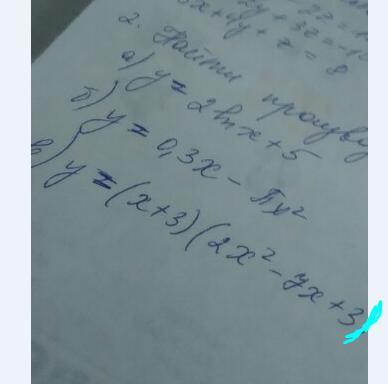 2y + 3z = -10
x + 4y + z = 8
2. Найти произво
а) y = 2lnx + 5
б) y = 0,3x - πx²
в) y = (x+3)(2x² - 7x + 3)